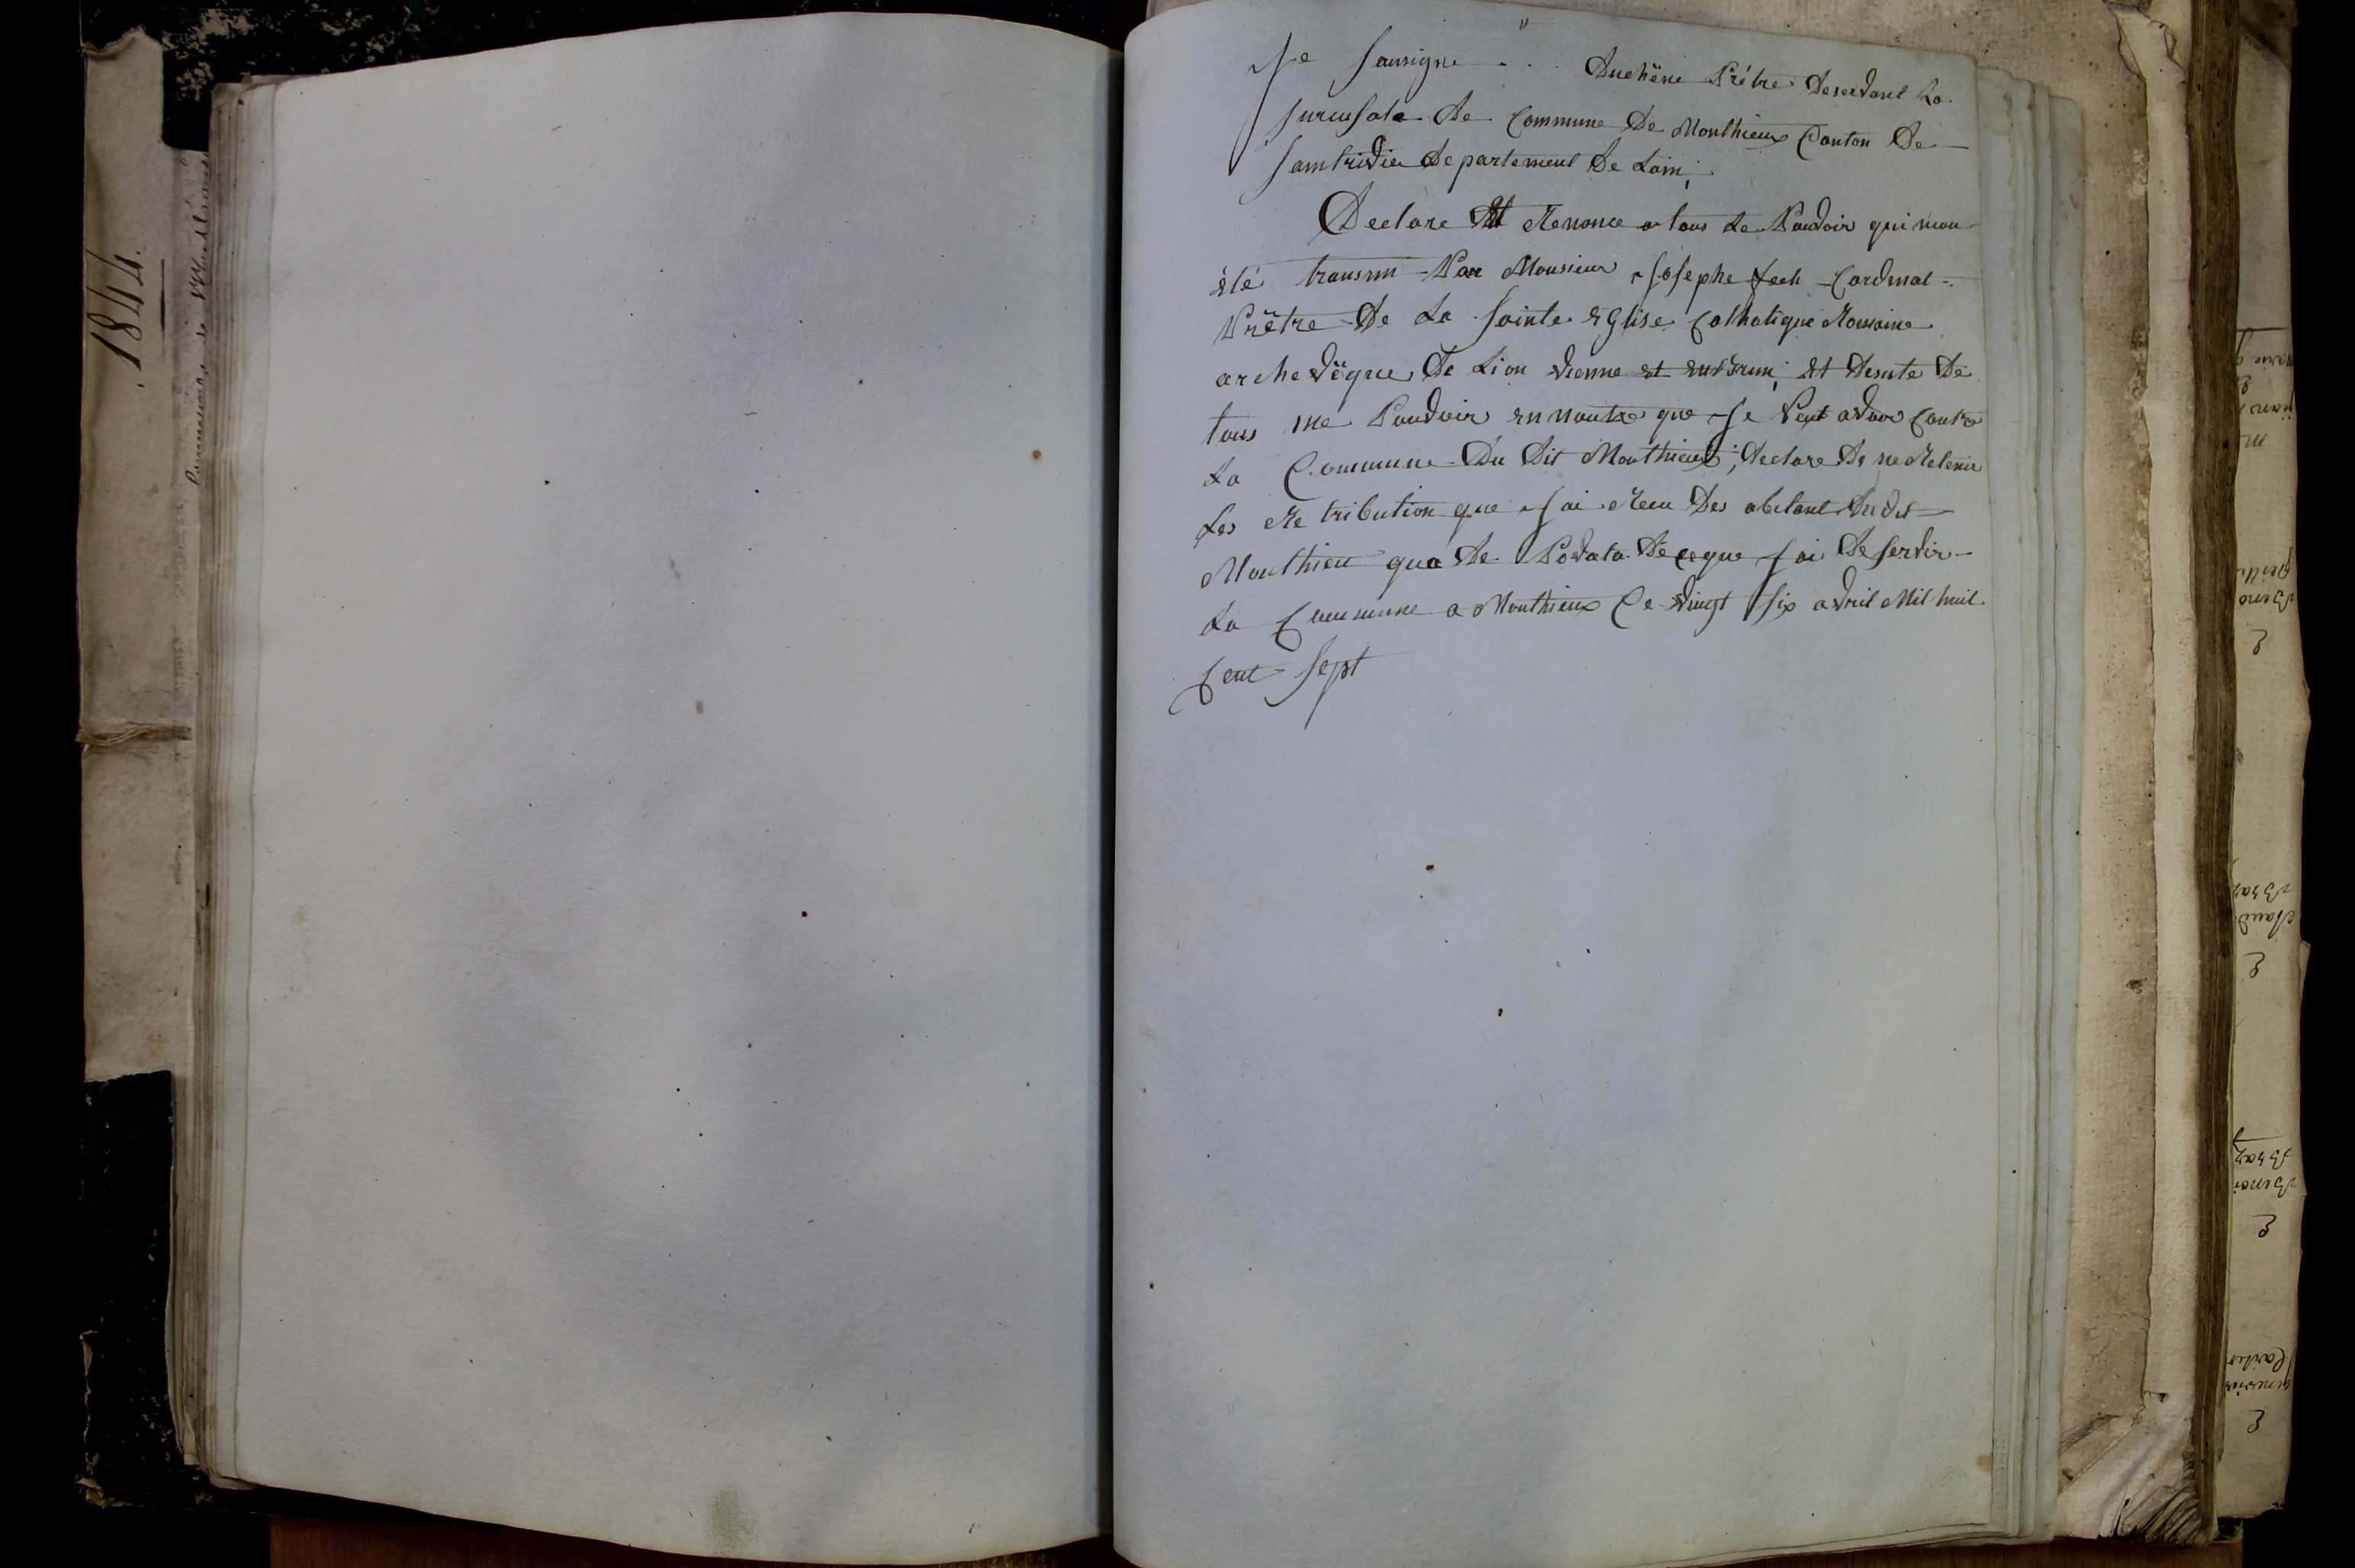 Je Sousigne . . . Duchëne Prétre Deservant La
surcusale De Commune De Monthieux Canton De
Saintrivier Departement De Lain,
Declare Et Renonce a tous Le Pouvoir qui mon
été transmi Par Monsieur Josephe fech Cardinal
Prëtre De La Sainte Eglise Catholique Romaine
archevêque De Lion vienne et embrun, Et Desute De
tous me Pouvoir en noutre que Je Peut avoir Contre
La Commune Du Dit Monthieux ; declare De ne Retenir
Les Retribution que Jai Recu Des abitant Dudit
Monthieu qua De Podata De ceque Jai De servir
La Commune a Monthieux Ce vingt six avril Mil huit
Cent Sept
1844.